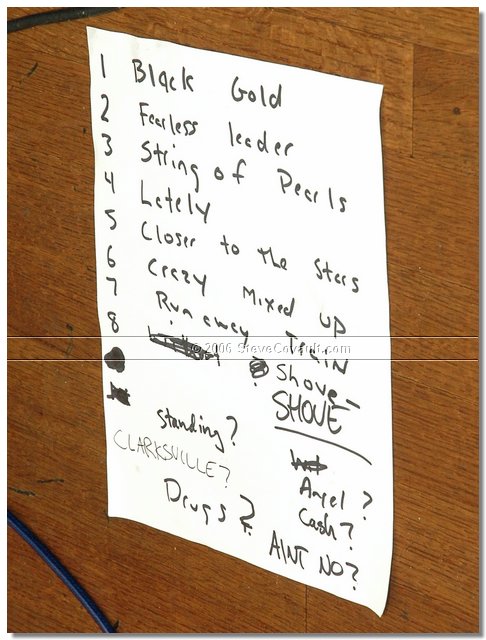 1 Black Gold
2 Fearless leader
3 String of Pearls
4 Lately
5 Closer to the Stars
6 Crazy Mixed UP
7 Run away TRAIN
8 Shove-
SHOVE
© 2006 SteveCovault.com
Standing?
CLARKSVILLE?
Drugs?
Angel?
Cash?
AINT NO?